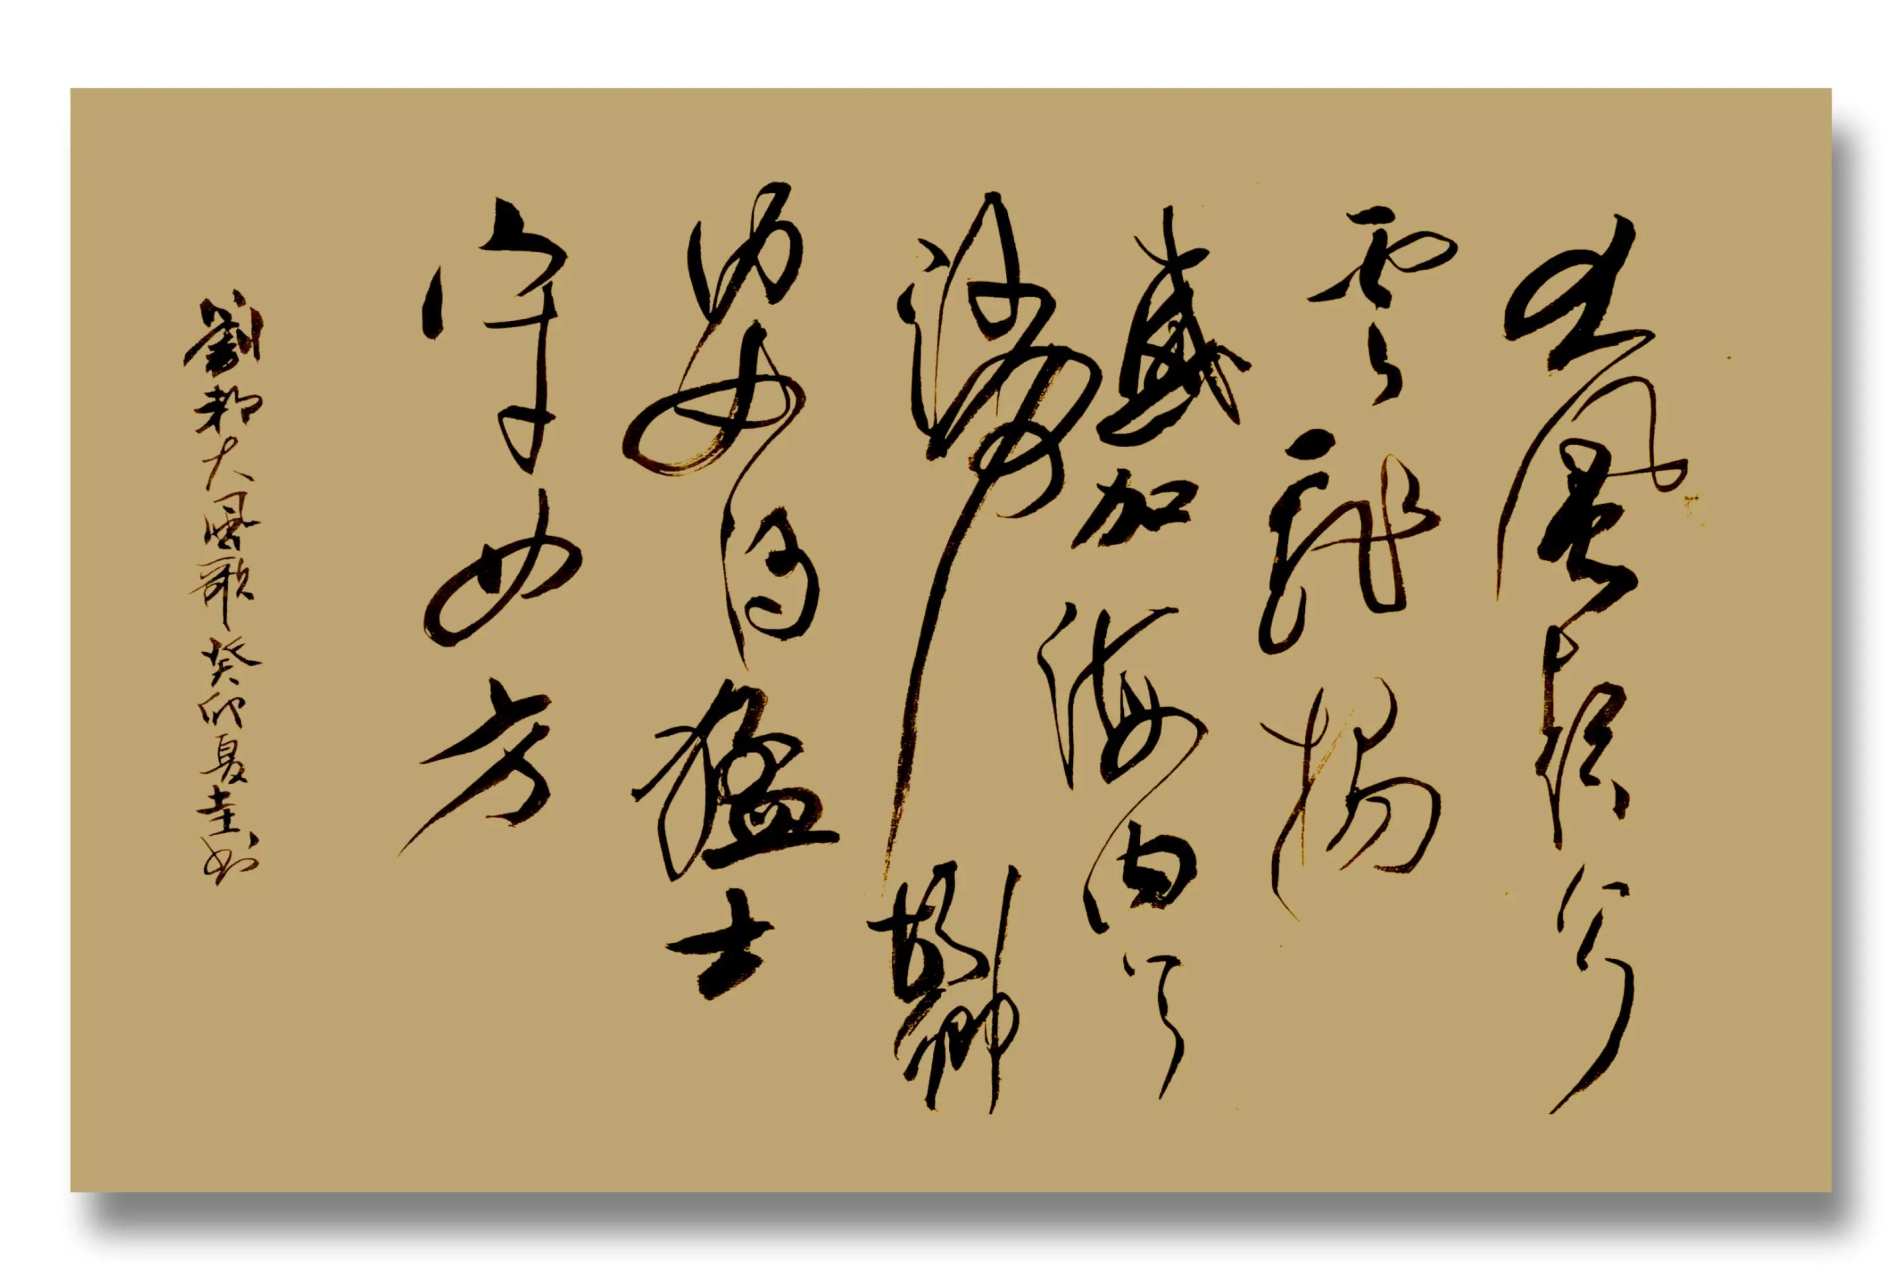 大風起兮
雲飛揚
威加海内兮
歸故鄉
安得猛士
守四方
劉邦大風歌癸卯夏圭书